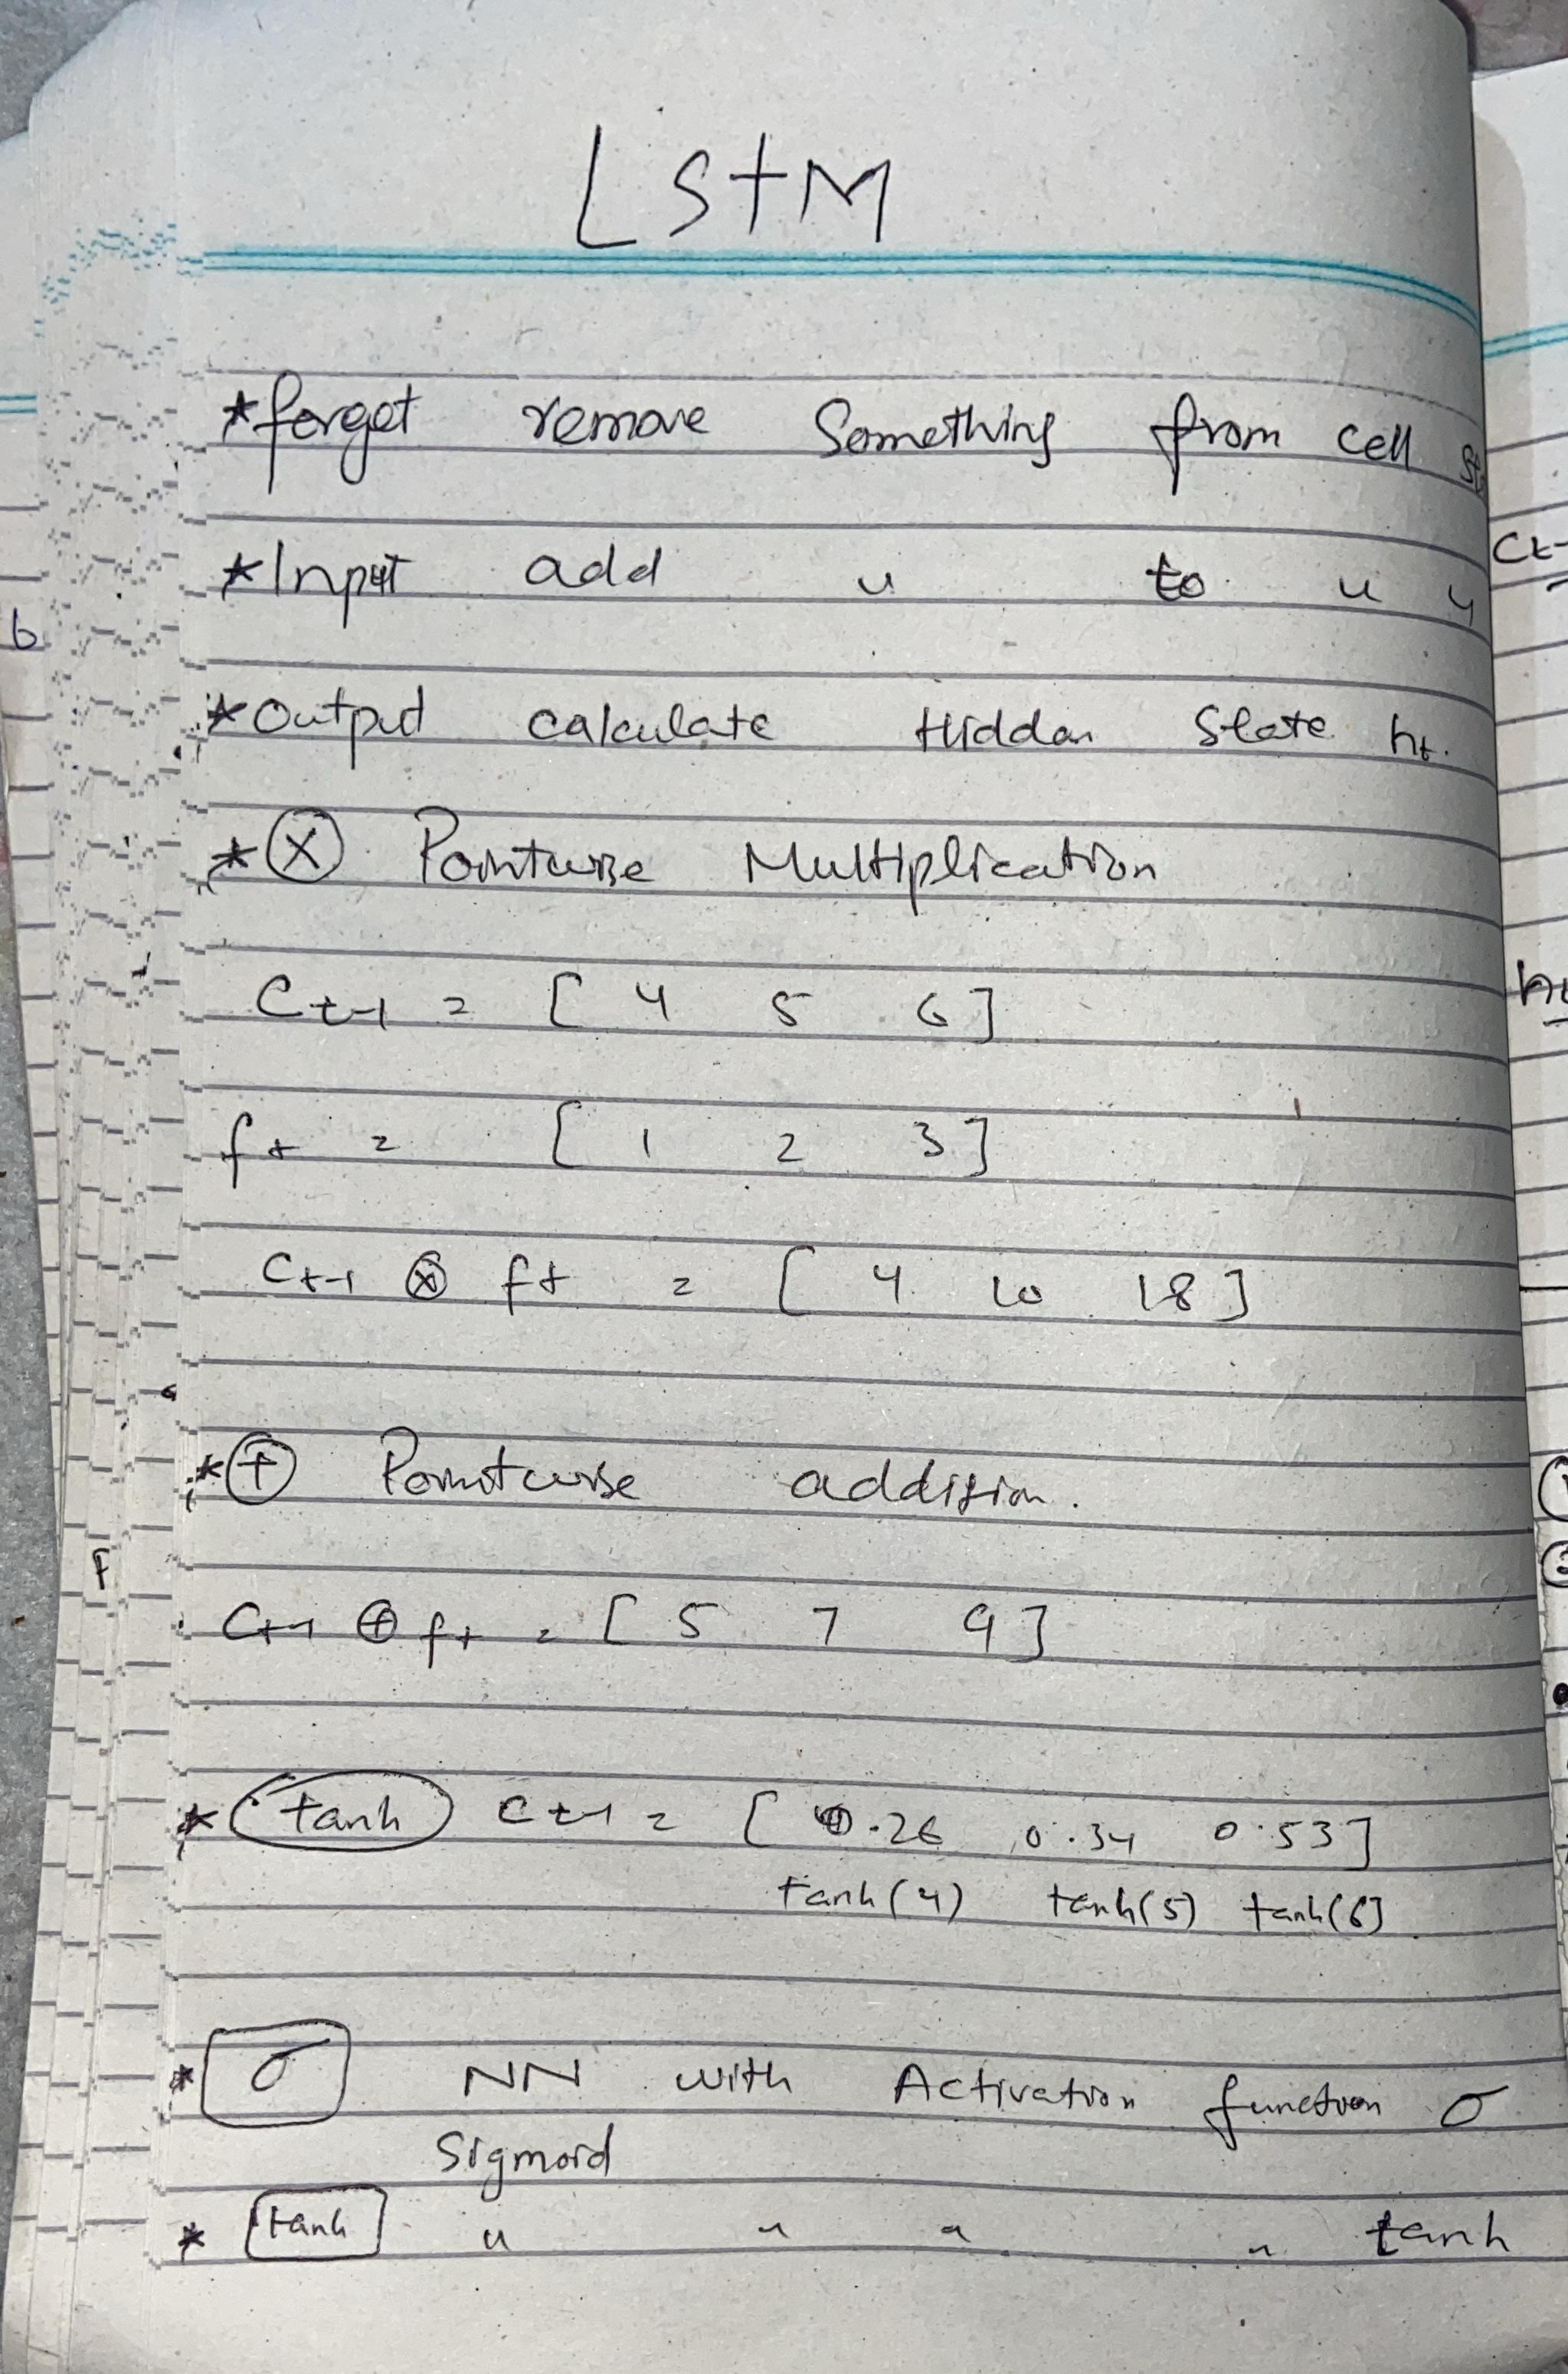 LStM
*forget remove Something from cell St
*Input add " to " "
*output calculate Hidden State ht.
*ⓧ Pointwise Multiplication
Ct-1 = [ 4 5 6 ]
ft = [ 1 2 3 ]
Ct-1 ⊗ ft = [ 4 10 18 ]
*⊕ Pointwise addition.
Ct-1 ⊕ ft = [ 5 7 9 ]
* tanh Ct-1 = [ 0.26 0.34 0.53 ]
tanh(4) tanh(5) tanh(6]
* σ NN with Activation function σ
Sigmoid
* tanh " " " " tanh
b
F
Ct-
ht